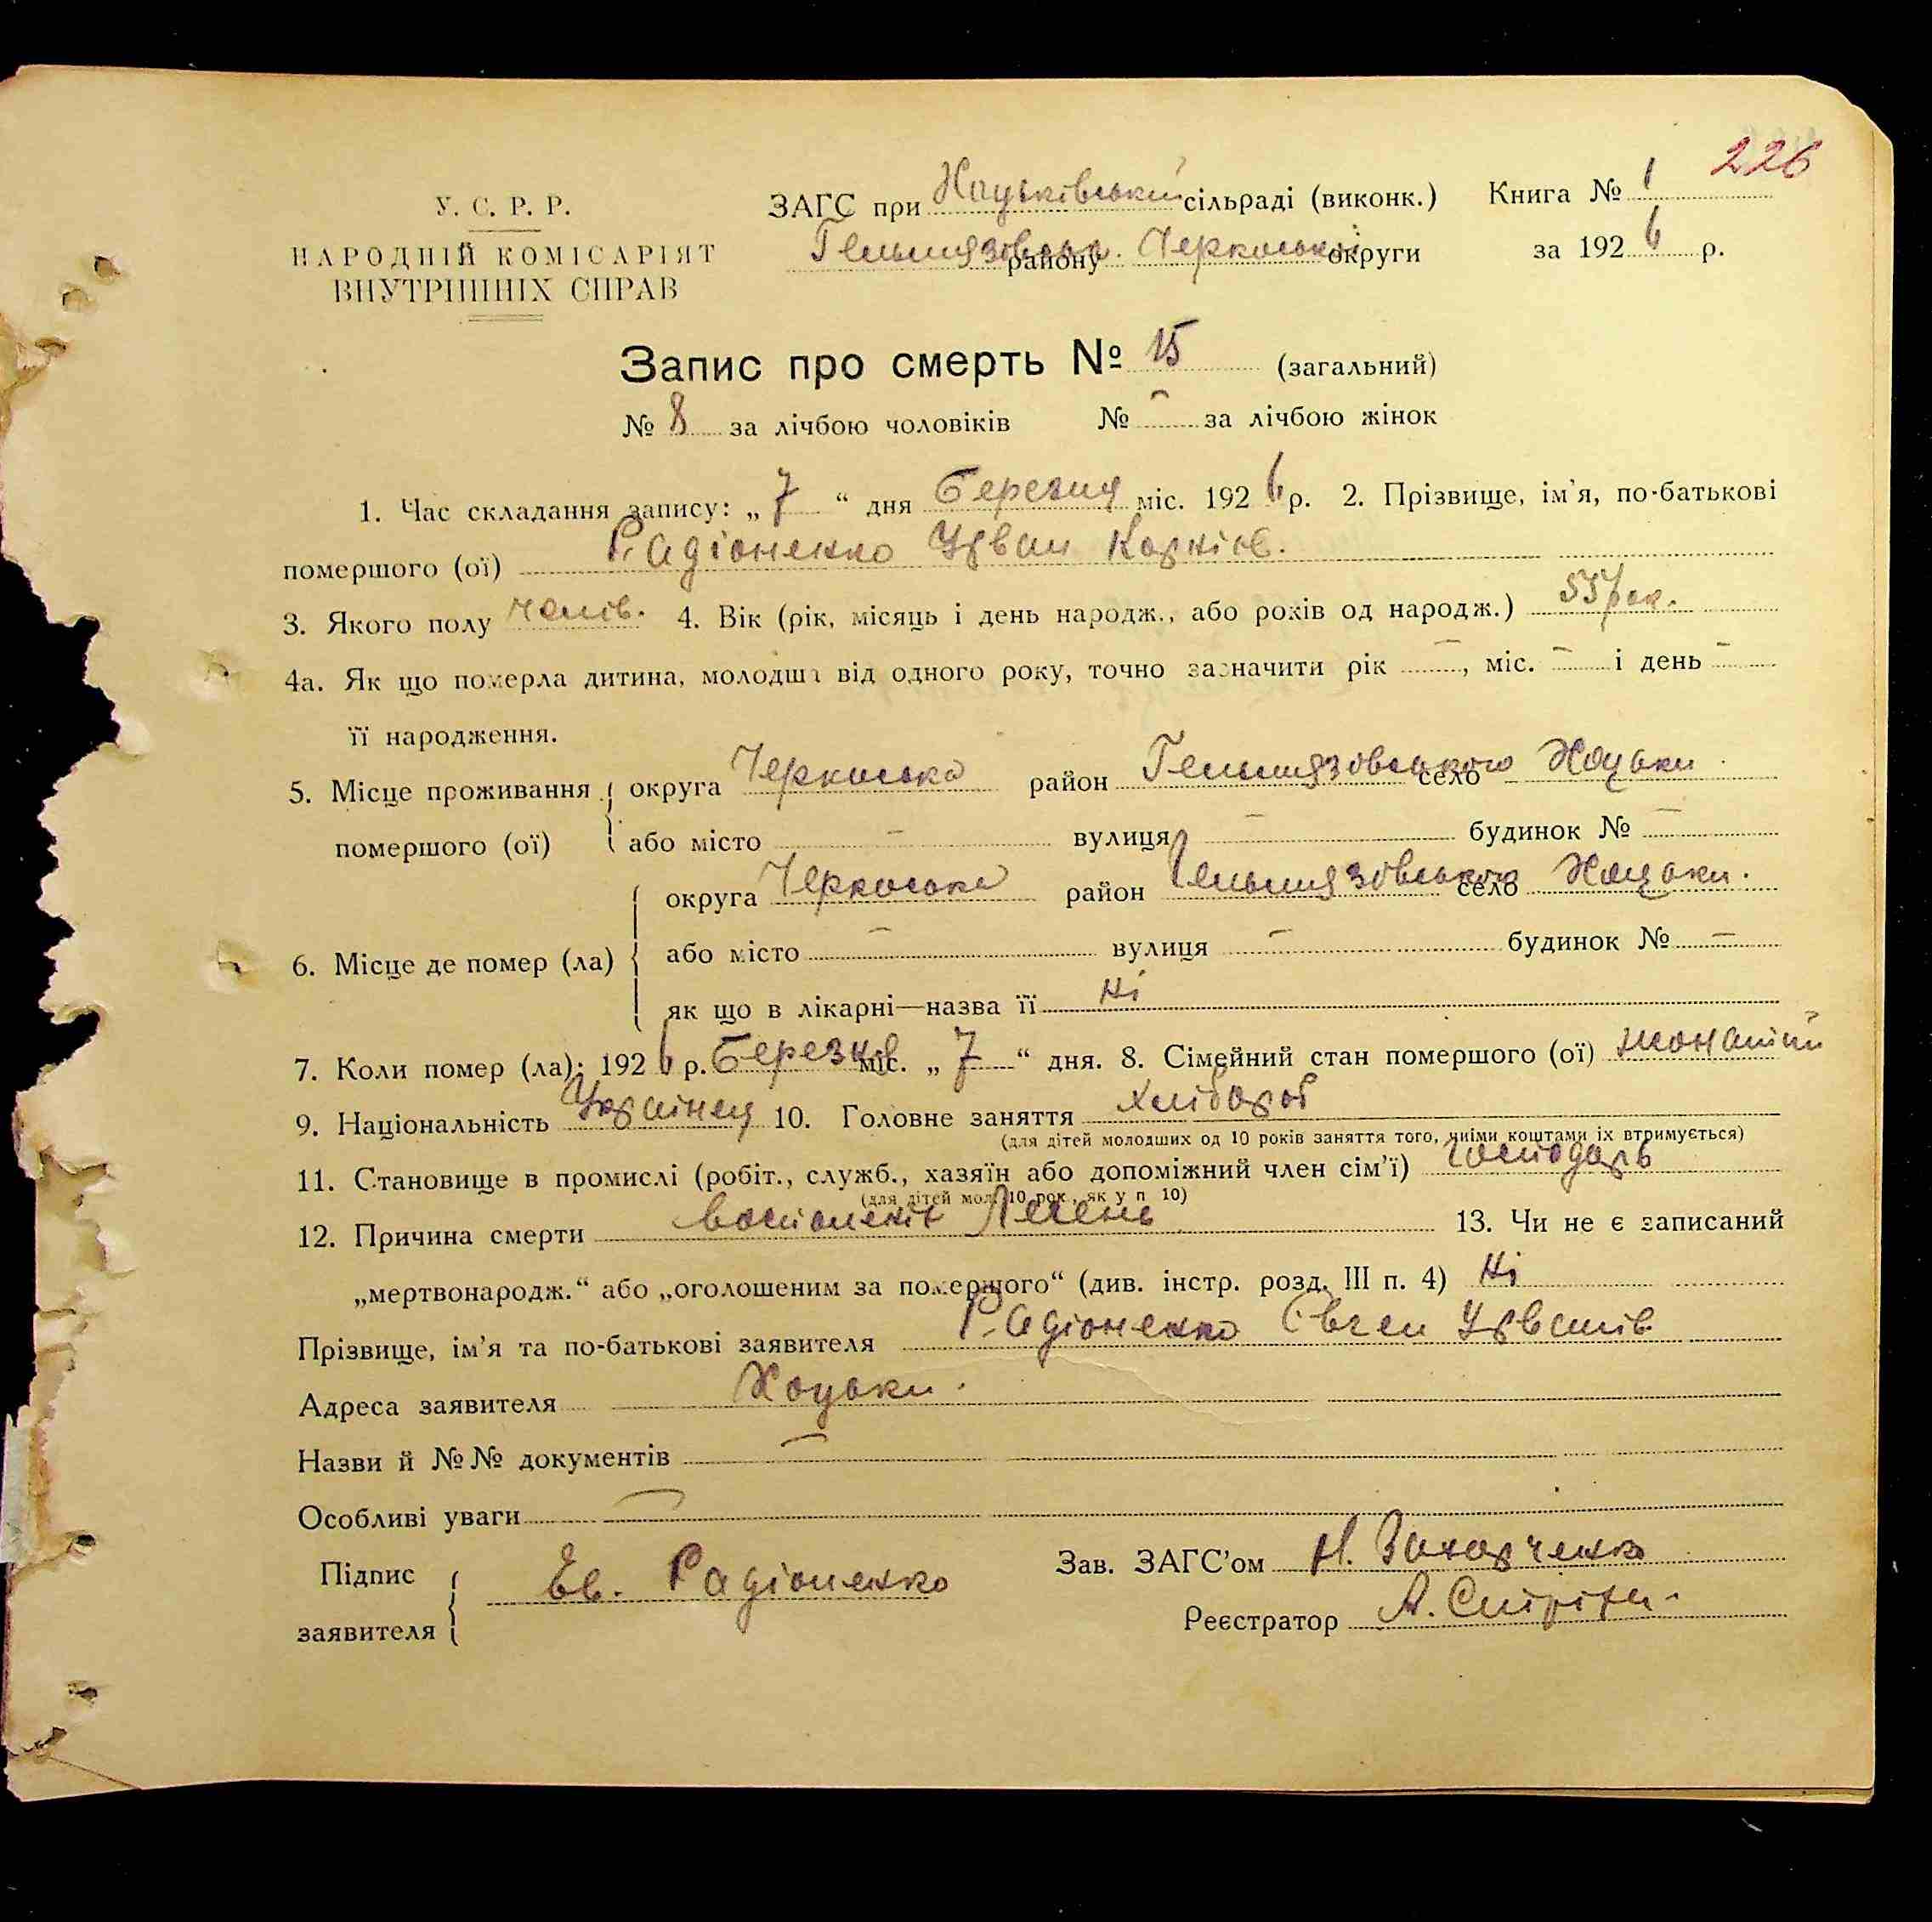 226
У. С. Р. Р.
НАРОДНІЙ КОМІСАРІЯТ
ВНУТРІШНІХ СПРАВ
ЗАГС при Хоцьківській сільраді (виконк.) Книга № 1
Гельмязівськ. району Черкаської округи за 1926 р.
Запис про смерть № 15 (загальний)
№ 8 за лічбою чоловіків № - за лічбою жінок
1. Час складання запису: „7“ дня Березня міс. 1926 р. 2. Прізвище, ім'я, по-батькові
помершого (ої) Радіоненко Іван Корнієв.
3. Якого полу чолів. 4. Вік (рік, місяць і день народж., або років од народж.) 55 рок.
4а. Як що померла дитина, молодша від одного року, точно зазначити рік –, міс. – і день –
її народження.
5. Місце проживання округа Черкаська район Гельмязівського село Хоцьки
помершого (ої) або місто – вулиця – будинок № –
округа Черкаська район Гельмязівського село Хоцьки.
6. Місце де помер (ла) або місто – вулиця – будинок № –
як що в лікарні—назва її ні
7. Коли помер (ла): 1926 р. Березня міс. „7“ дня. 8. Сімейний стан помершого (ої) жонатий
9. Національність Українец 10. Головне заняття хлібороб
(для дітей молодших од 10 років заняття того, чиїми коштами їх втримується)
11. Становище в промислі (робіт., служб., хазяїн або допоміжний член сім'ї) господарь
(для дітей мол. 10 рок., як у п 10)
12. Причина смерти 13. Чи не є записаний
„мертвонародж.“ або „оголошеним за помершого“ (див. інстр. розд. III п. 4) ні
Прізвище, ім'я та по-батькові заявителя Радіоненко Євген Іванів.
Адреса заявителя Хоцьки.
Назви й №№ документів –
Особливі уваги –
Підпис
заявителя Ев. Радіоненко
Зав. ЗАГС'ом Н. Захарченко
Реєстратор А.